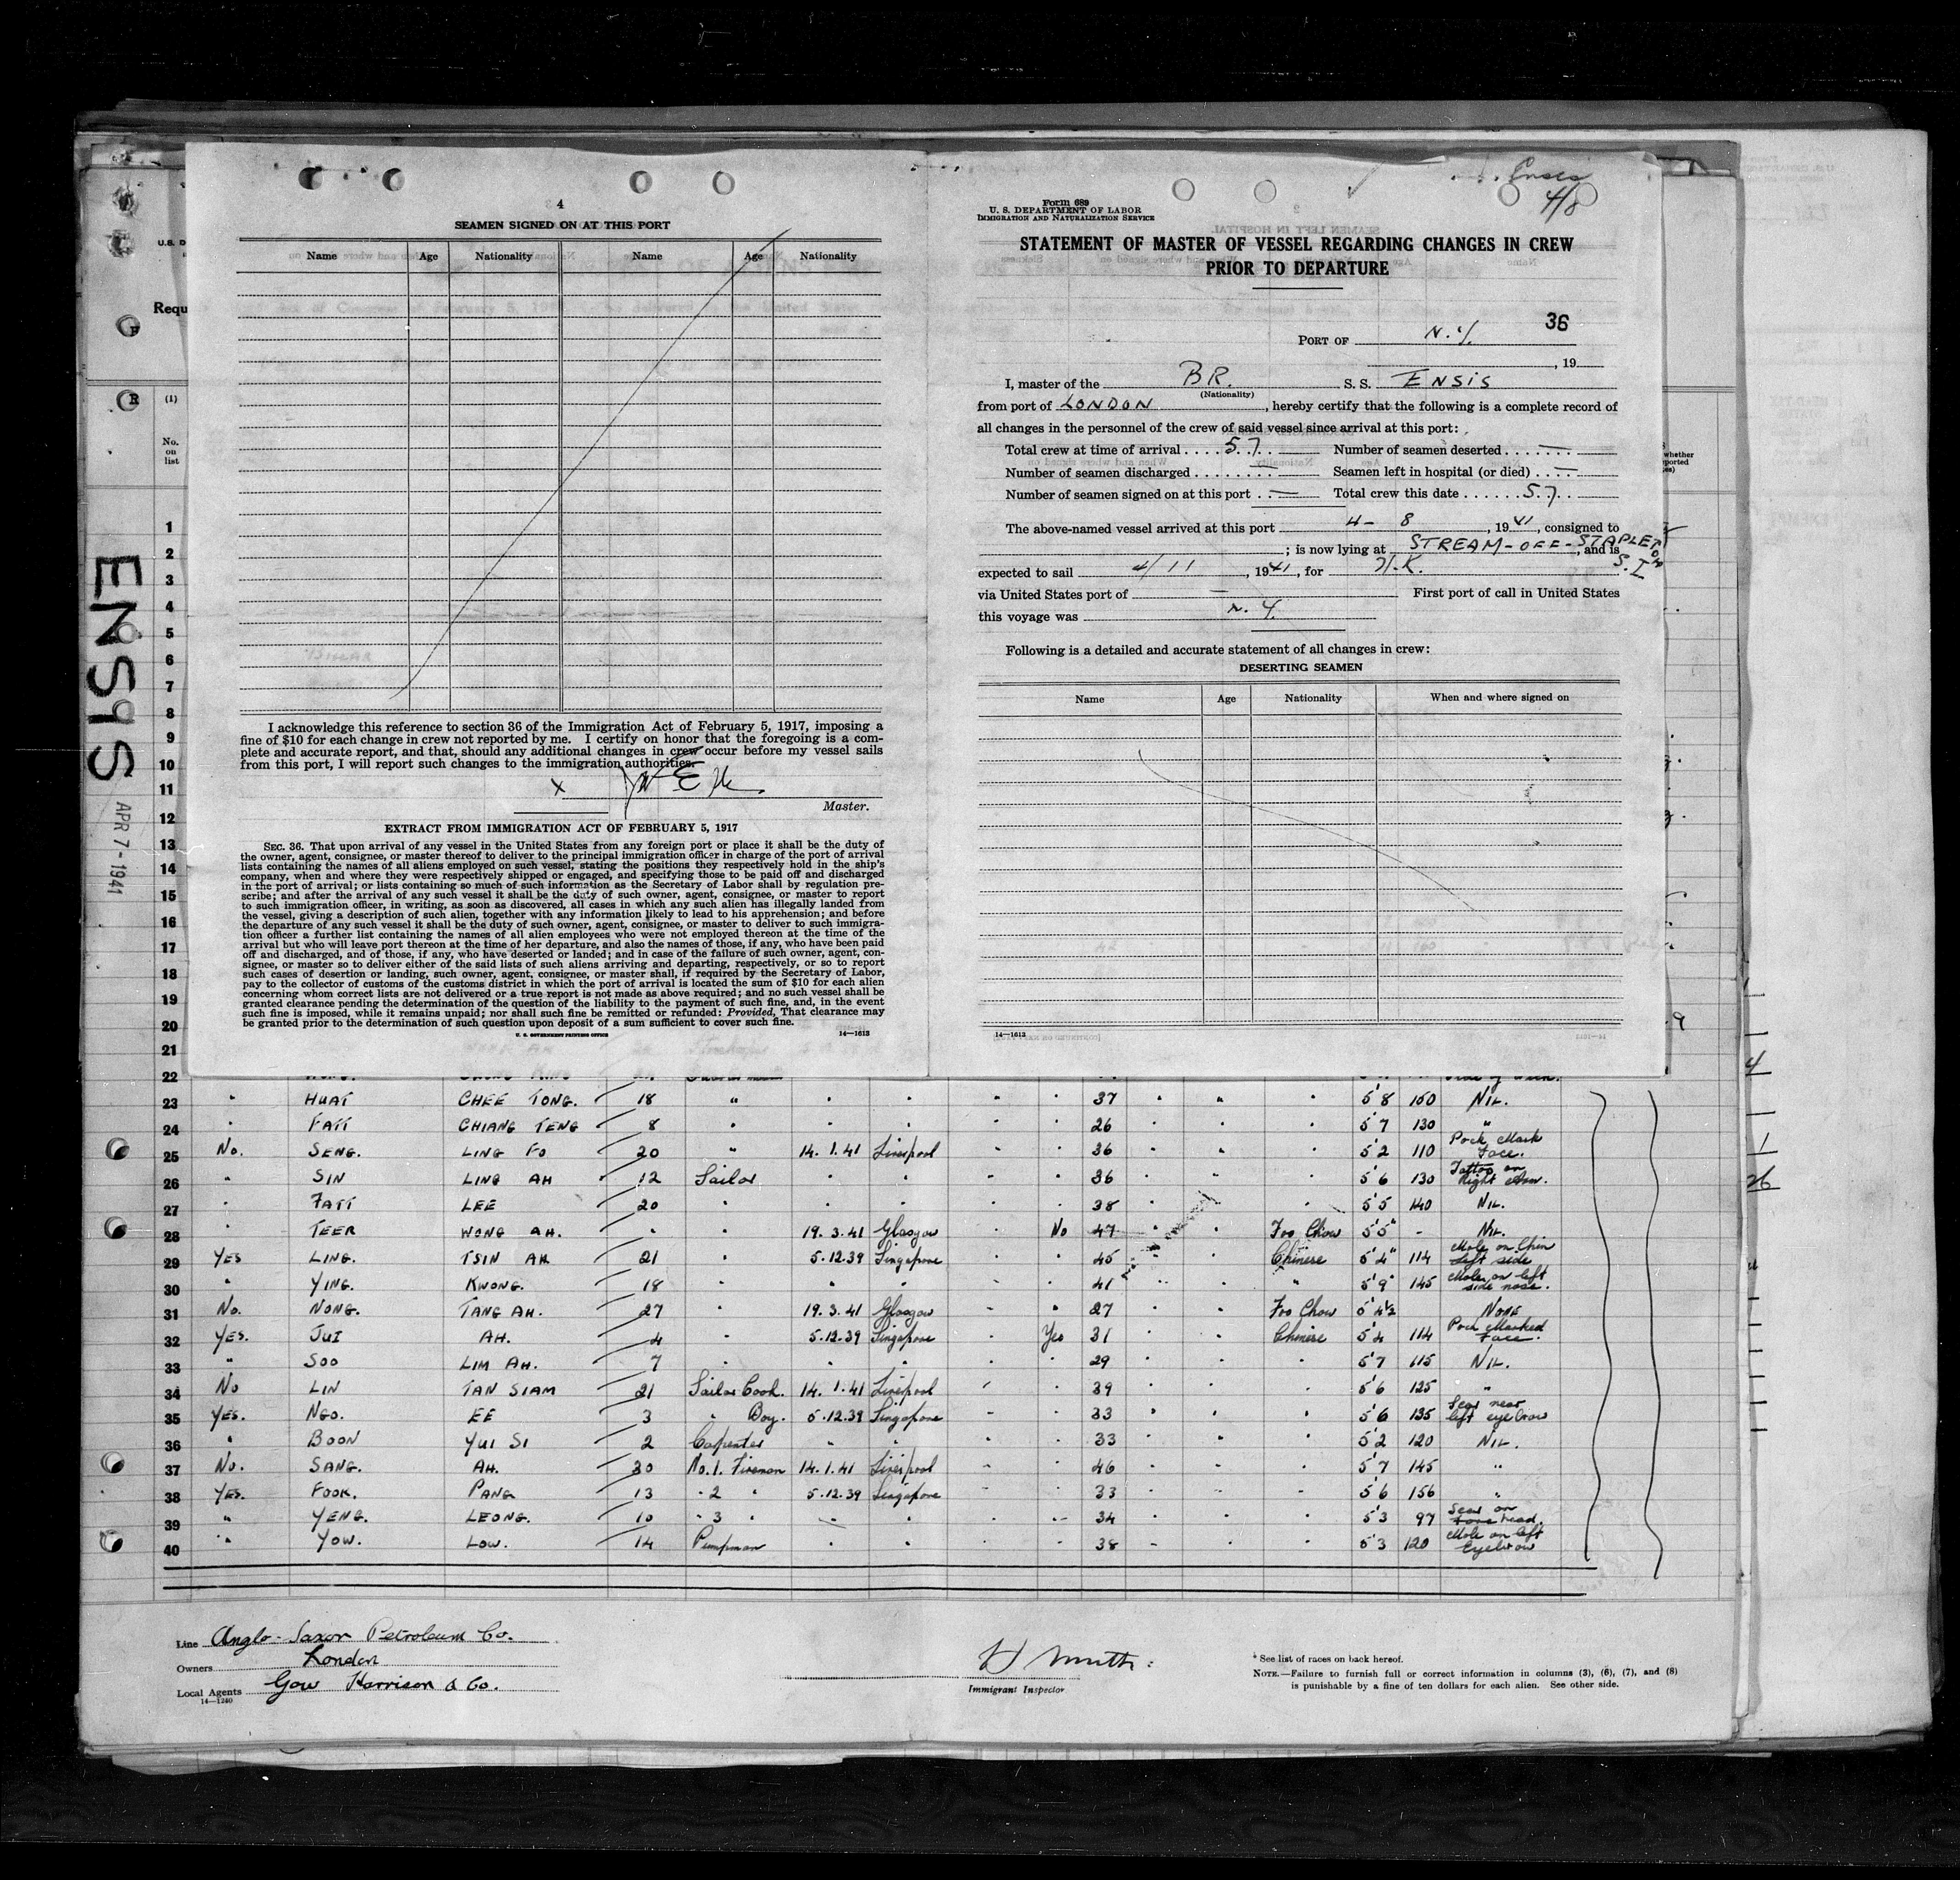 4
SEAMEN SIGNED ON AT THIS PORT
Name Age Nationality Name Age Nationality
I acknowledge this reference to section 36 of the Immigration Act of February 5, 1917, imposing a
fine of $10 for each change in crew not reported by me. I certify on honor that the foregoing is a com-
plete and accurate report, and that, should any additional changes in crew occur before my vessel sails
from this port, I will report such changes to the immigration authorities.
X
Master.
EXTRACT FROM IMMIGRATION ACT OF FEBRUARY 5, 1917
SEC. 36. That upon arrival of any vessel in the United States from any foreign port or place it shall be the duty of
the owner, agent, consignee, or master thereof to deliver to the principal immigration officer in charge of the port of arrival
lists containing the names of all aliens employed on such vessel, stating the positions they respectively hold in the ship's
company, when and where they were respectively shipped or engaged, and specifying those to be paid off and discharged
in the port of arrival; or lists containing so much of such information as the Secretary of Labor shall by regulation pre-
scribe; and after the arrival of any such vessel it shall be the duty of such owner, agent, consignee, or master to report
to such immigration officer, in writing, as soon as discovered, all cases in which any such alien has illegally landed from
the vessel, giving a description of such alien, together with any information likely to lead to his apprehension; and before
the departure of any such vessel it shall be the duty of such owner, agent, consignee, or master to deliver to such immigra-
tion officer a further list containing the names of all alien employees who were not employed thereon at the time of the
arrival but who will leave port thereon at the time of her departure, and also the names of those, if any, who have been paid
off and discharged, and of those, if any, who have deserted or landed; and in case of the failure of such owner, agent, con-
signee, or master so to deliver either of the said lists of such aliens arriving and departing, respectively, or so to report
such cases of desertion or landing, such owner, agent, consignee, or master shall, if required by the Secretary of Labor,
pay to the collector of customs of the customs district in which the port of arrival is located the sum of $10 for each alien
concerning whom correct lists are not delivered or a true report is not made as above required; and no such vessel shall be
granted clearance pending the determination of the question of the liability to the payment of such fine, and, in the event
such fine is imposed, while it remains unpaid; nor shall such fine be remitted or refunded: Provided, That clearance may
be granted prior to the determination of such question upon deposit of a sum sufficient to cover such fine.
U. S. GOVERNMENT PRINTING OFFICE 14—1613
Ensis
4/8
Form 689
U. S. DEPARTMENT OF LABOR
IMMIGRATION AND NATURALIZATION SERVICE
STATEMENT OF MASTER OF VESSEL REGARDING CHANGES IN CREW
PRIOR TO DEPARTURE
36
PORT OF N.Y.
, 19
I, master of the BR. S. S. ENSIS
(Nationality)
from port of LONDON, hereby certify that the following is a complete record of
all changes in the personnel of the crew of said vessel since arrival at this port:
Total crew at time of arrival 57 Number of seamen deserted —
Number of seamen discharged — Seamen left in hospital (or died) —
Number of seamen signed on at this port — Total crew this date 57
The above-named vessel arrived at this port 4-8, 1941, consigned to
; is now lying at STREAM-OFF-STAPLETON S.I, and is
expected to sail 4/11, 1941, for
via United States port of — First port of call in United States
this voyage was N.Y.
Following is a detailed and accurate statement of all changes in crew:
DESERTING SEAMEN
Name Age Nationality When and where signed on
14—1613
U.S. D
Requ
(1)
No.
on
list
ENSIS
APR 7-1941
1
2
3
4
5
6
7
8
9
10
11
12
13
14
15
16
17
18
19
20
21
22
23 " HUAT CHEE TONG. 18 " " " " " 37 " " " 5'8 150 NIL.
24 " FATT CHIANG TENG 8 " " " " " 26 " " " 5'7 130 "
25 No. SENG. LING FO 20 " 14.1.41 Liverpool " " 36 " " " 5'2 110 Pock Mark Face.
26 " SIN LING AH 12 Sailor " " " " 36 " " " 5'6 130 Tattoo on Right Arm.
27 " FATT LEE 20 " " " " " 38 " " " 5'5 140 NIL.
28 " TEER WONG AH. " " 19.3.41 Glasgow " No 47 " " Foo Chow 5'5" - NIL.
29 YES LING. TSIN AH 21 " 5.12.39 Singapore " " 45 " " Chinese 5'4" 114 Mole on Chin Left side
30 " YING. KWONG. 18 " " " " " 41 " " " 5'9" 145 Mole on left side nose.
31 No. NONG. TANG AH. 27 " 19.3.41 Glasgow " " 27 " " Foo Chow 5'4½ NONE
32 YES. JUI AH. 4 " 5.12.39 Singapore " Yes 31 " " Chinese 5'4 114 Pock Marked Face.
33 " SOO LIM AH. 7 " " " " " 29 " " " 5'7 115 NIL.
34 No LIN TAN SIAM 21 Sailor Cook. 14.1.41 Liverpool " " 39 " " " 5'6 125 "
35 YES. NGO. EE 3 " Boy. 5.12.39 Singapore " " 33 " " " 5'6 135 Scar near left eyebrow
36 " BOON YUI SI 2 Carpenter " " " " 33 " " " 5'2 120 NIL.
37 No. SANG. AH. 30 No.1. Fireman 14.1.41 Liverpool " " 46 " " " 5'7 145 "
38 YES. FOOK. PANG 13 " 2 " 5.12.39 Singapore " " 33 " " " 5'6 156 "
39 " YENG. LEONG. 10 " 3 " " " " " 34 " " " 5'3 97 Scar on head.
40 " YOW. LOW. 14 Pumpman " " " " 38 " " " 5'3 120 Mole on left Eyebrow
Line Anglo-Saxon Petroleum Co.
Owners London
Local Agents Gow Harrison & Co.
14—1240
Immigrant Inspector
* See list of races on back hereof.
NOTE.—Failure to furnish full or correct information in columns (3), (6), (7), and (8)
is punishable by a fine of ten dollars for each alien. See other side.